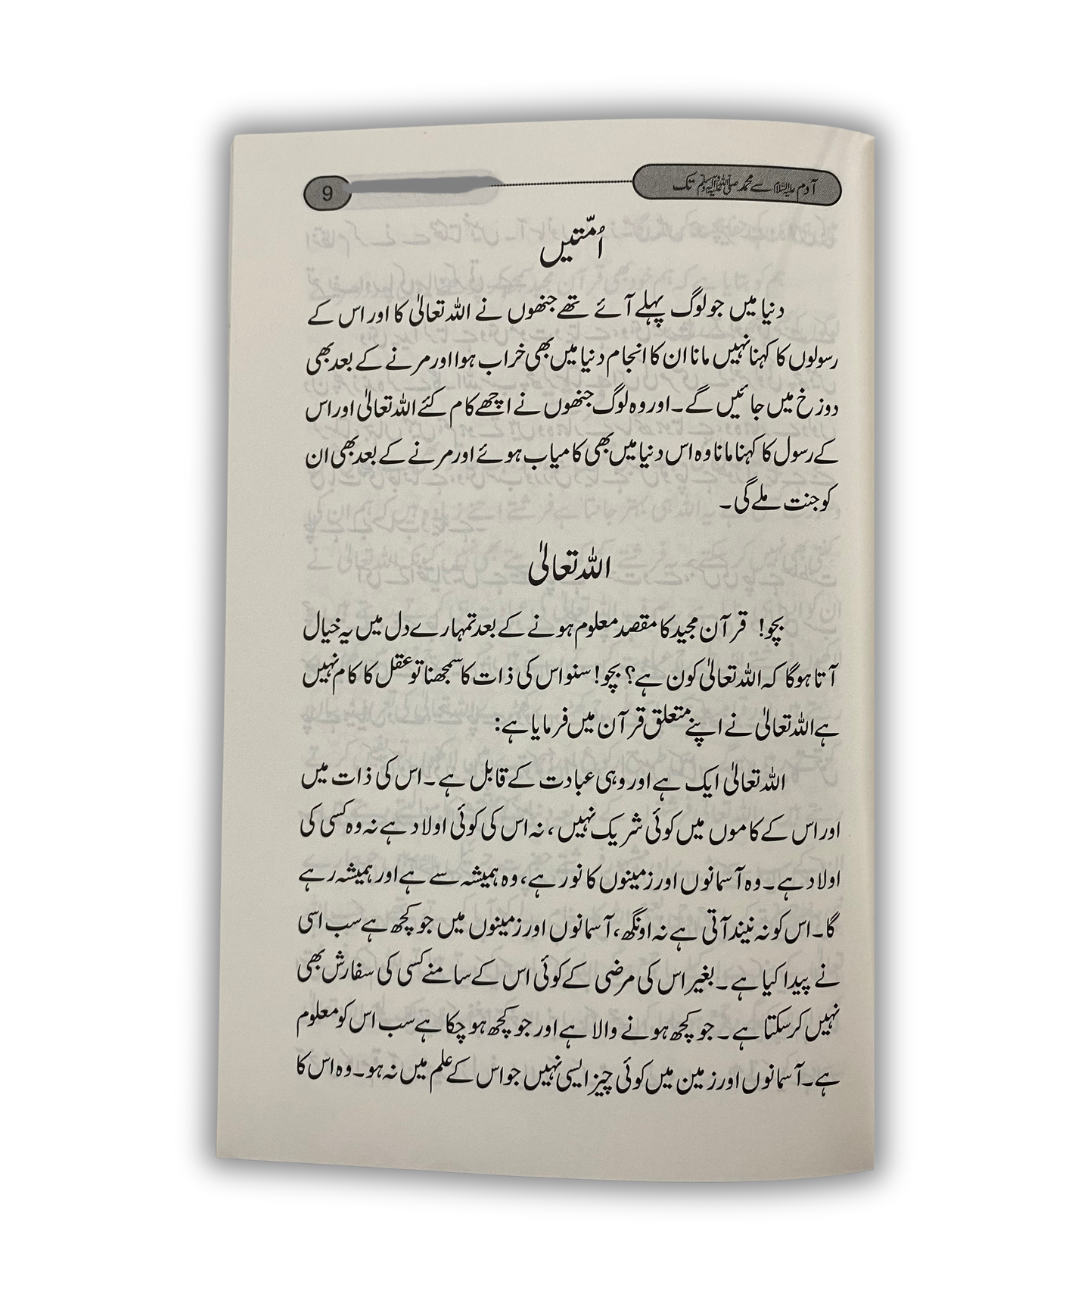 آدم علیہ السلام سے محمد صلی اللہ علیہ وسلم تک
9
اُمّتیں
دنیا میں جو لوگ پہلے آئے تھے جنھوں نے اللہ تعالیٰ کا اور اس کے
رسولوں کا کہنا نہیں مانا ان کا انجام دنیا میں بھی خراب ہوا اور مرنے کے بعد بھی
دوزخ میں جائیں گے۔ اور وہ لوگ جنھوں نے اچھے کام کئے اللہ تعالیٰ اور اس
کے رسول کا کہنا مانا وہ اس دنیا میں بھی کامیاب ہوئے اور مرنے کے بعد بھی ان
کو جنت ملے گی۔
اللہ تعالیٰ
بچو! قرآن مجید کا مقصد معلوم ہونے کے بعد تمہارے دل میں یہ خیال
آتا ہوگا کہ اللہ تعالیٰ کون ہے؟ بچو! سنو اس کی ذات کا سمجھنا تو عقل کا کام نہیں
ہے اللہ تعالیٰ نے اپنے متعلق قرآن میں فرمایا ہے:
اللہ تعالیٰ ایک ہے اور وہی عبادت کے قابل ہے۔ اس کی ذات میں
اور اس کے کاموں میں کوئی شریک نہیں، نہ اس کی کوئی اولاد ہے نہ وہ کسی کی
اولاد ہے۔ وہ آسمانوں اور زمینوں کا نور ہے، وہ ہمیشہ سے ہے اور ہمیشہ رہے
گا۔ اس کو نہ نیند آتی ہے نہ اونگھ، آسمانوں اور زمینوں میں جو کچھ ہے سب اسی
نے پیدا کیا ہے۔ بغیر اس کی مرضی کے کوئی اس کے سامنے کسی کی سفارش بھی
نہیں کرسکتا ہے۔ جو کچھ ہونے والا ہے اور جو کچھ ہو چکا ہے سب اس کو معلوم
ہے۔ آسمانوں اور زمین میں کوئی چیز ایسی نہیں جو اس کے علم میں نہ ہو۔ وہ اس کا